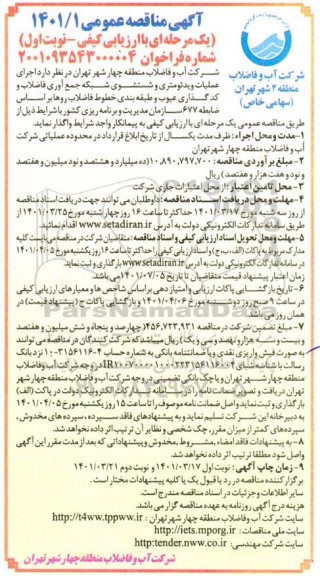 آگهی مناقصه عمومی ۱۴۰۱/۱
(یک مرحله‌ای با ارزیابی کیفی – نوبت اول)
شماره فراخوان ۲۰۰۱۰۹۳۵۴۳۰۰۰۰۰۴
شرکت آب و فاضلاب
منطقه ۴ شهر تهران
(سهامی خاص)
شرکت آب و فاضلاب منطقه چهار شهر تهران در نظر دارد اجرای
عملیات ویدئومتری و شستشوی شبکه جمع آوری فاضلاب و
کدگذاری عیوب و طبقه بندی خطوط فاضلاب رو ها بر اساس
ضابطه ۶۷۷ سازمان مدیریت و برنامه ریزی کشور با شرایط ذیل از
طریق مناقصه عمومی یک مرحله ای با ارزیابی کیفی به پیمانکار واجد شرایط واگذار نماید.
۱- مدت و محل اجراء: ظرف مدت یکسال از تاریخ ابلاغ قرارداد در محدوده عملیاتی شرکت
آب و فاضلاب منطقه چهار شهر تهران
۲- مبلغ برآوردی مناقصه: ۱۰،۸۹۰،۷۹۷،۷۰۰ (ده میلیارد و هشتصد و نود میلیون و هفتصد
و نود و هفت هزار و هفتصد) ریال
۳- محل تأمین اعتبار: از محل اعتبارات جاری شرکت
۴- مهلت و محل دریافت اسناد مناقصه: داوطلبان می توانند جهت دریافت اسناد مناقصه
از روز سه شنبه مورخ ۱۴۰۱/۰۳/۱۷ حداکثر تا ساعت ۱۶ روز چهارشنبه مورخ ۱۴۰۱/۰۳/۲۵ از
طریق سامانه تدارکات الکترونیکی دولت به آدرس www.setadiran.ir اقدام نمایند.
۵- مهلت و محل تحویل اسناد ارزیابی کیفی و اسناد مناقصه: متقاضیان شرکت در مناقصه می بایست کلیه
مدارک مربوط به پاکات (الف، ب، ج) و اسناد ارزیابی کیفی را حداکثر تا ساعت ۱۶ روز یکشنبه مورخ ۱۴۰۱/۰۴/۰۵
در سامانه تدارکات الکترونیکی دولت به آدرس www.setadiran.ir بارگذاری و ثبت نماید.
زمان اعتبار پیشنهاد قیمت متقاضیان تا تاریخ ۱۴۰۱/۰۷/۰۵ می باشد.
۶- تاریخ بازگشایی پاکات ارزیابی و امتیازدهی بر اساس شاخص ها و معیارهای ارزیابی کیفی
در ساعت ۹ صبح روز دوشنبه مورخ ۱۴۰۱/۰۴/۰۶ و بازگشایی پاکات ج (پیشنهاد قیمت) در
همان روز می باشد.
۷- مبلغ تضمین شرکت در مناقصه ۴۵۶،۷۲۳،۹۳۱ (چهارصد و پنجاه و شش میلیون و هفتصد
و بیست و سه هزار و نهصد و سی و یک) ریال میباشد که شرکت کنندگان در مناقصه می توانند
به صورت فیش واریزی نقدی و یا ضمانتنامه بانکی به شماره حساب
در وجه شرکت آب و فاضلاب
منطقه چهار شهر تهران و یا چک بانکی تضمینی در وجه شرکت آب و فاضلاب منطقه چهار شهر
تهران دریافت و تصویر ضمانت نامه را در سامانه تدارکات الکترونیک دولت در پاکت (الف)
بارگذاری و ثبت نماید و اصل ضمانت نامه را بصورت فیزیکی حداکثر تا ساعت ۱۵ روز یکشنبه مورخ ۱۴۰۱/۰۴/۰۵
به دبیرخانه این شرکت تسلیم نماید و به پیشنهادهای فاقد سپرده، سپرده های مخدوش،
سپرده‌های کمتر از میزان مقرر، چک شخصی و نظایر آن ترتیب اثر داده نخواهد شد.
۸- به پیشنهادات فاقد امضاء، مشروط، مخدوش و پیشنهاداتی که بعد از مدت مقرر این آگهی
واصل شود مطلقا ترتیب اثر داده نخواهد شد.
۹- زمان چاپ آگهی: نوبت اول ۱۴۰۱/۰۳/۱۷ و نوبت دوم ۱۴۰۱/۰۳/۲۱
برگزار کننده مناقصه در رد یا قبول یک یا کلیه پیشنهادات مختار است.
سایر اطلاعات و جزئیات در اسناد مناقصه مندرج است.
هزینه درج آگهی روزنامه به عهده مناقصه گزار می باشد.
سایت شرکت آب و فاضلاب منطقه چهار شهر تهران: http://t4ww.tppww.ir
سایت ملی مناقصات: http://iets.mporg.ir
سایت شرکت مهندسی: http:tender.nww.co.ir
شرکت آب و فاضلاب منطقه چهار شهر تهران